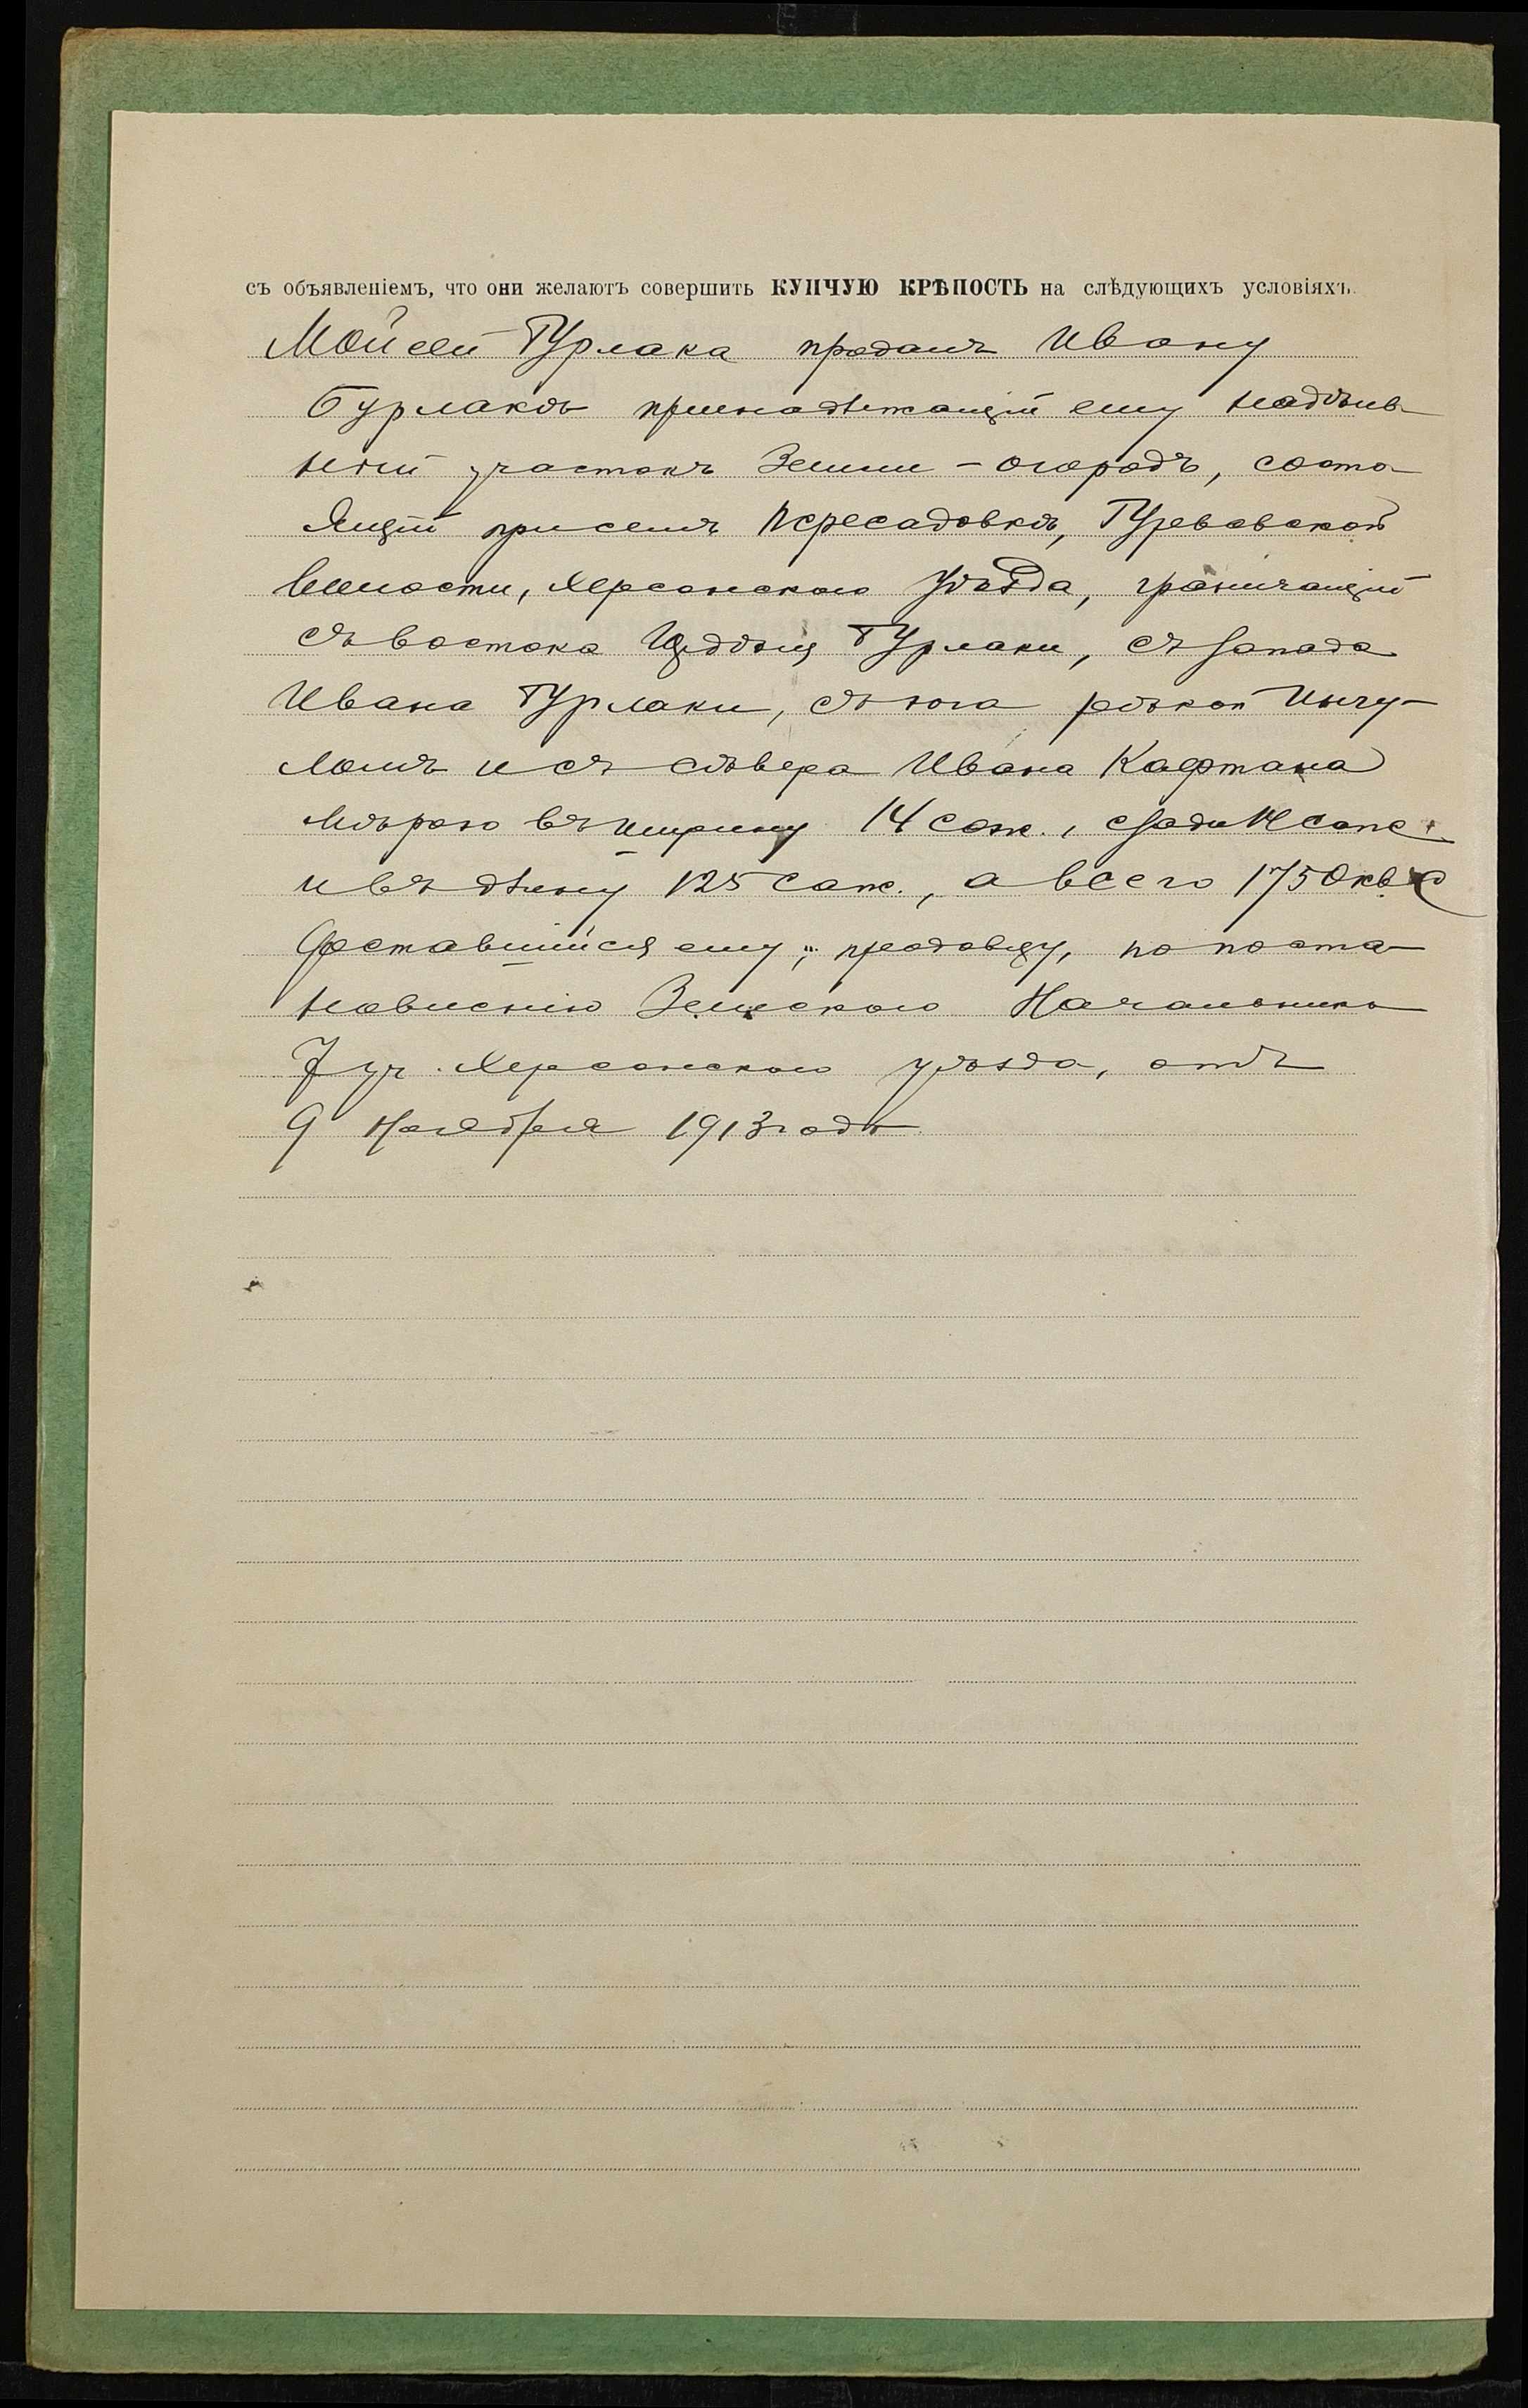 съ объявленіемъ, что они желаютъ совершить КУПЧУЮ КРѢПОСТЬ на слѣдующихъ условіяхъ.
Мойсей Бурлака продалъ Ивану
Бурлакѣ принадлежащій ему надѣль-
ный участокъ земли - огородъ, состо-
ящій при селѣ Пересадовкѣ, Гурьевской
волости, Херсонскаго уѣзда, граничащій
съ востока Бурлаки, съ запада
Ивана Бурлаки, съ юга рѣкой Ингу-
ломъ и съ сѣвера Ивана Кафтана
мѣрою въ ширину 14 саж., сзади 14 саж.
и въ длину 125 саж., а всего 1750 кв. с
доставшійся ему, продавцу, по поста-
новленію Земскаго Начальника
7 уч. Херсонскаго уѣзда, отъ
9 Ноября 1913 года.